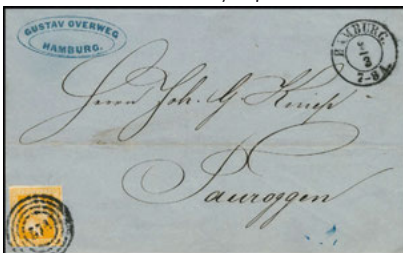 GUSTAV OVERWEG
HAMBURG.
HAMBURG.
2
7-8A.
Herrn Joh. G
Tauroggen